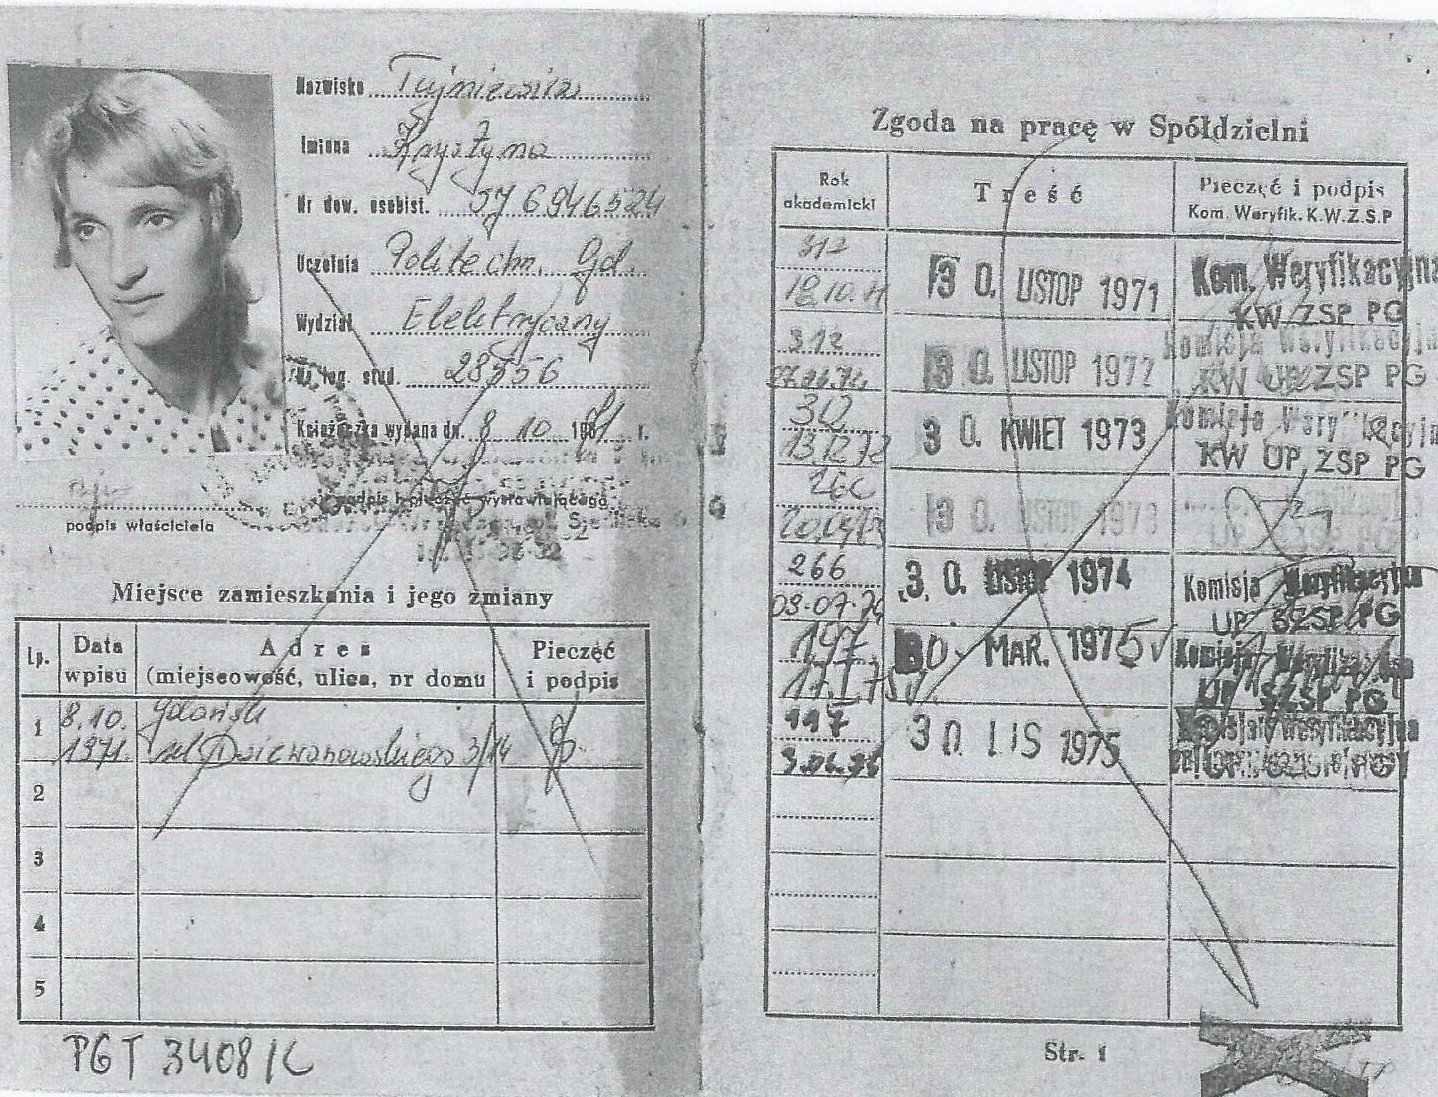 Nazwisko Tujniewicz
Imiona Krystyna
Nr dow. osobist. 6946524
Uczelnia Politechn. Gd.
Wydział Elektryczny
Nr leg. stud. 28556
Książeczka wydana dn. 8 10 1971 r.
podpis i pieczęć wystawiającego
podpis właściciela
Miejsce zamieszkania i jego zmiany
Lp. Data wpisu Adres (miejscowość, ulica, nr domu Pieczęć i podpis
1 8.10. Gdańsk
1971. ul Dziewanowskiego 3/14
2
3
4
5
PGT 3408/C
Zgoda na pracę w Spółdzielni
Rok akademicki Treść Pieczęć i podpis
Kom. Weryfik. K.W.Z.S.P
312 30. LISTOP 1971 Kom. Weryfikacyjna
KW ZSP PG
312 30. LISTOP 1972 Komisja Weryfikacyjna
KW UP ZSP PG
312 30. KWIET 1973 Komisja Weryfikacyjna
13.12.72 KW UP, ZSP PG
30. LISTOP 1973
266 30. LISTOP 1974 Komisja Weryfikacyjna
09.07.74 UP SZSP PG
147 30. MAR. 1975 Komisja Weryfikacyjna
UP SZSP PG
117 30 LIS 1975 Komisja Weryfikacyjna
Str. 1